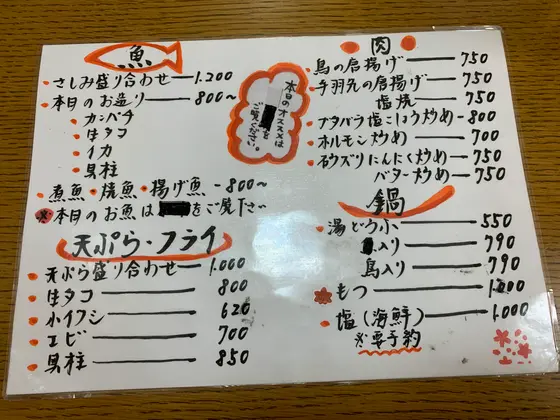 魚
・さしみ盛り合わせ―1,200
・本日のお造り―800～
・カンパチ
・生タコ
・イカ
・貝柱
・煮魚・焼魚・揚げ魚―800～
※本日のお魚は をご覧下さい
本日のオススメは
を
ご覧ください。
天ぷら・フライ
・天ぷら盛り合わせ―1,000
・生タコ―800
・小イワシ―620
・エビ―700
・貝柱―850
・肉・
・鳥の唐揚げ―750
・手羽先の唐揚げ―750
塩焼―750
・ブタバラ塩こしょう炒め―800
・ホルモン炒め―700
・砂ズリにんにく炒め―750
バター炒め―750
鍋
・湯どうふ―550
入り―790
鳥入り―790
もつ―1,200
・塩(海鮮)―1,000
※要予約